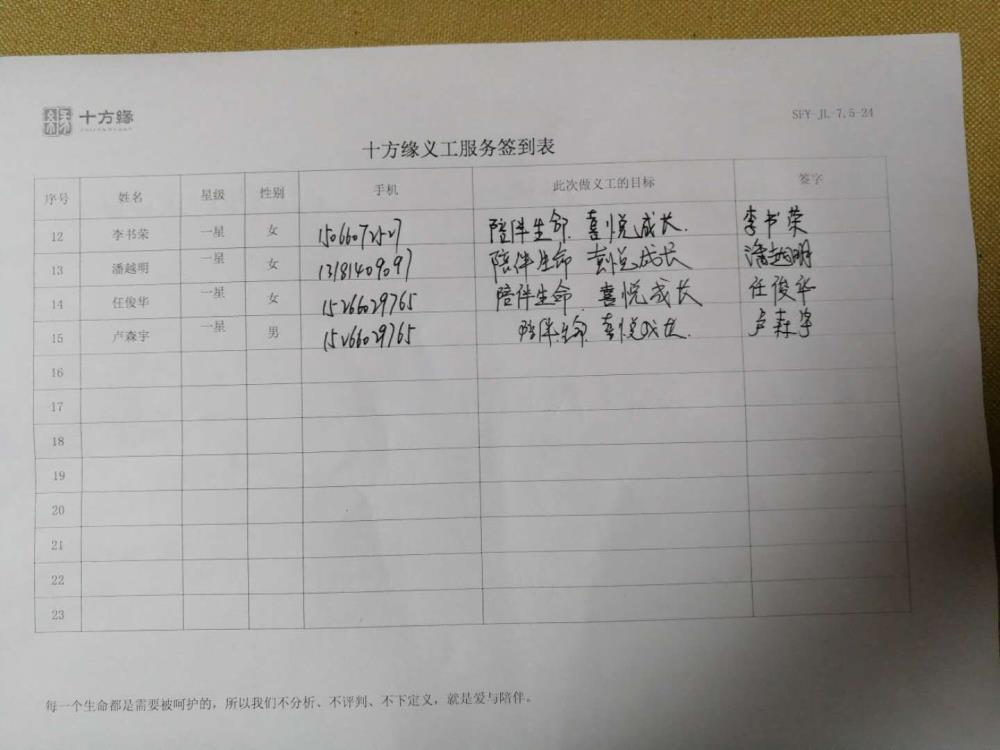 十方缘
SFY-JL-7.5-24
十方缘义工服务签到表
序号 姓名 星级 性别 手机 此次做义工的目标 签字
12 李书荣 一星 女 15066072527 陪伴生命.喜悦成长. 李书荣
13 潘越明 一星 女 13181409097 陪伴生命 喜悦成长 潘越明
14 任俊华 一星 女 15266029765 陪伴生命.喜悦成长 任俊华
15 卢森宇 一星 男 15266029765 陪伴生命.喜悦成长. 卢森宇
16
17
18
19
20
21
22
23
每一个生命都是需要被呵护的，所以我们不分析、不评判、不下定义，就是爱与陪伴。